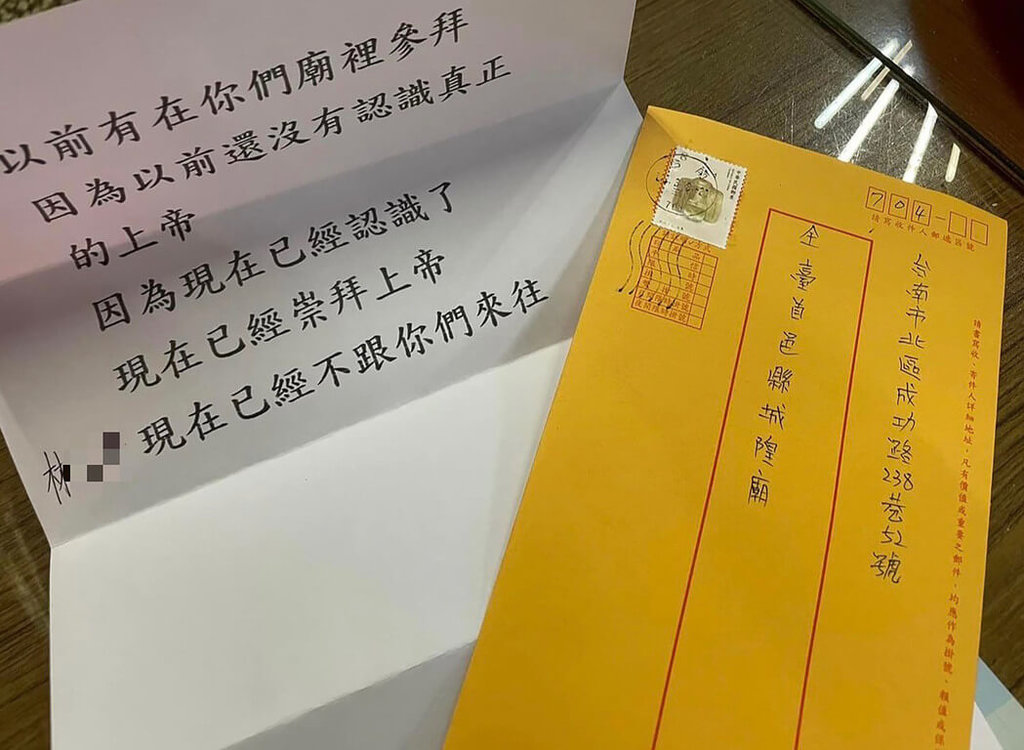 以前有在你們廟裡參拜
因為以前還沒有認識真正
的上帝
因為現在已經認識了
現在已經崇拜上帝
現在已經不跟你們來往
林
704-
請寫收件人郵遞區號
台南市北區成功路238巷52號
全臺首邑縣城隍廟
請書寫收、寄件人詳細地址,凡有價值或重要之郵件,均應作為掛號、報值或保